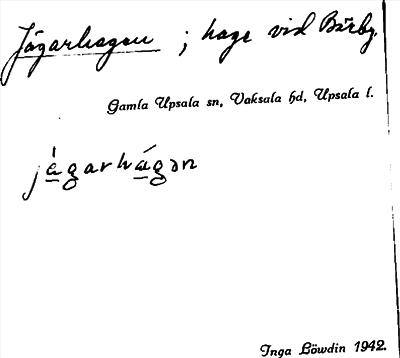 Jägarhagen ; hage vid Bärby.
Gamla Upsala sn, Vaksala hd, Upsala l.
jà̱garhá̱gən
Inga Löwdin 1942.